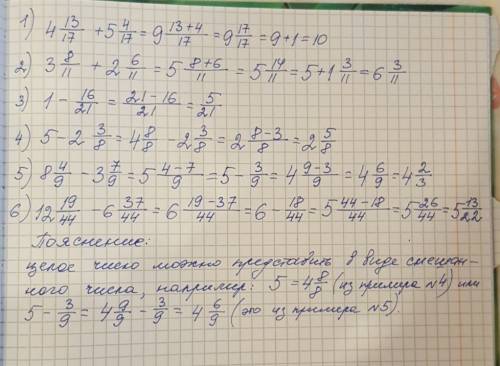 1) 4 13/17 + 5 4/17 = 9 13+4/17 = 9 17/17 = 9+1 = 10
2) 3 8/11 + 2 6/11 = 5 8+6/11 = 5 14/11 = 5+1 3/11 = 6 3/11
3) 1 - 16/21 = 21-16/21 = 5/21
4) 5 - 2 3/8 = 4 8/8 - 2 3/8 = 2 8-3/8 = 2 5/8
5) 8 4/9 - 3 7/9 = 5 4-7/9 = 5 - 3/9 = 4 9-3/9 = 4 6/9 = 4 2/3
6) 12 19/44 - 6 37/44 = 6 19-37/44 = 6 - 18/44 = 5 44-18/44 = 5 26/44 = 5 13/22
Пояснение:
целое число можно представить в виде смешан-
ного числа, например: 5 = 4 8/8 (из примера №4) или
5 - 3/9 = 4 9/9 - 3/9 = 4 6/9 (это из примера №5).